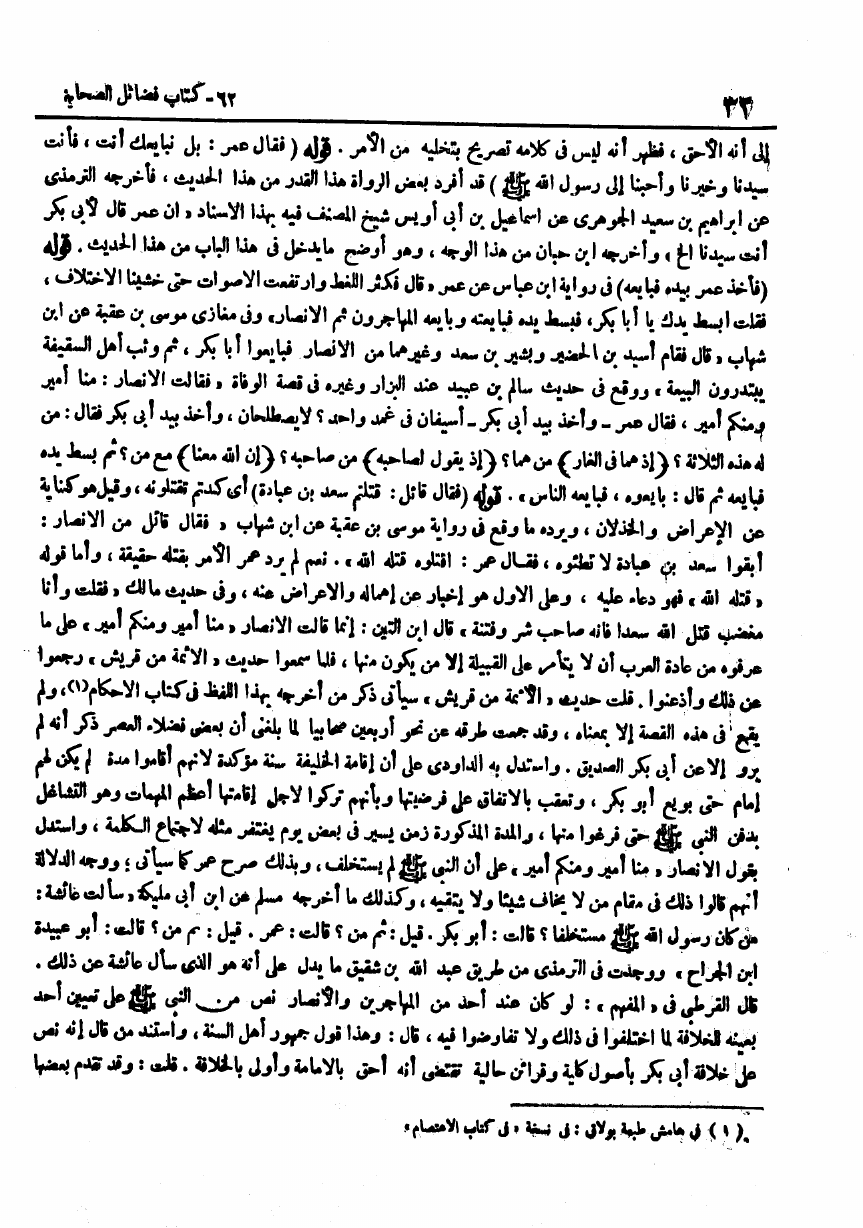 ٣٢
٦٢ - كتاب فضائل الصحابة
إلى أنه الأحق ، فظهر أنه ليس فى كلامه تصريح بتخليه من الأمر . قوله ( فقال عمر : بل نبايعك أنت ، فأنت
سيدنا وخيرنا وأحبنا إلى رسول الله ﷺ ) قد أفرد بعض الرواة هذا القدر من هذا الحديث ، فأخرجه الترمذى
عن ابراهيم بن سعيد الجوهرى عن اسماعيل بن أبى أويس شيخ المصنف فيه بهذا الاسناد « ان عمر قال لأبى بكر
أنت سيدنا الخ » وأخرجه ابن حبان من هذا الوجه ، وهو أوضح مايدخل فى هذا الباب من هذا الحديث . قوله
(فأخذ عمر بيده فبايعه) فى رواية ابن عباس عن عمر « قال فكثر اللغط وارتفعت الاصوات حتى خشينا الاختلاف ،
فقلت ابسط يدك يا أبا بكر ، فبسط يده فبايعته وبايعه المهاجرون ثم الانصار» وفى مغازى موسى بن عقبة عن ابن
شهاب « قال فقام أسيد بن الحضير وبشير بن سعد وغيرهما من الانصار فبايعوا أبا بكر ، ثم وثب أهل السقيفة
يبتدرون البيعة » ووقع فى حديث سالم بن عبيد عند البزار وغيره فى قصة الوفاة « فقالت الانصار : منا أمير
ومنكم أمير ، فقال عمر - وأخذ بيد أبى بكر - أسيفان فى غمد واحد ؟ لايصطلحان ، وأخذ بيد أبى بكر فقال : من
له هذه الثلاثة ؟ ﴿إذ هما فى الغار﴾ من هما ؟ ﴿إذ يقول لصاحبه﴾ من صاحبه ؟ ﴿إن الله معنا﴾ مع من ؟ ثم بسط يده
فبايعه ثم قال : بايعوه ، فبايعه الناس » . قوله (فقال قائل : قتلتم سعد بن عبادة) أى كدتم تقتلونه ، وقيل هو كناية
عن الإعراض والخذلان ، ويرده ما وقع فى رواية موسى بن عقبة عن ابن شهاب « فقال قائل من الانصار :
أبقوا سعد بن عبادة لا تطئوه ، فقال عمر : اقتلوه قتله الله » . نعم لم يرد عمر الأمر بقتله حقيقة ، وأما قوله
« قتله الله » فهو دعاء عليه ، وعلى الاول هو إخبار عن إهماله والاعراض عنه ، وفى حديث مالك « فقلت وأنا
مغضب قتل الله سعدا فانه صاحب شر وفتنة » قال ابن التين : إنما قالت الانصار « منا أمير ومنكم أمير » على ما
عرفوه من عادة العرب أن لا يتأمر على القبيلة إلا من يكون منها ، فلما سمعوا حديث « الأئمة من قريش » رجعوا
عن ذلك وأذعنوا . قلت حديث « الأئمة من قريش » سيأتى ذكر من أخرجه بهذا اللفظ فى كتاب الاحكام(١)، ولم
يقع فى هذه القصة إلا بمعناه ، وقد جمعت طرقه عن نحو أربعين صحابيا لما بلغنى أن بعض فضلاء العصر ذكر أنه لم
يرو إلا عن أبى بكر الصديق . واستدل به الداودى على أن إقامة الخليفة سنة مؤكدة لانهم أقاموا مدة لم يكن لهم
إمام حتى بويع أبو بكر ، وتعقب بالاتفاق على فرضيتها وبأنهم تركوا لاجل إقامتها أعظم المهمات وهو التشاغل
بدفن النبى ﷺ حتى فرغوا منها ، والمدة المذكورة زمن يسير فى بعض يوم يغتفر مثله لاجتماع الكلمة ، واستدل
بقول الانصار « منا أمير ومنكم أمير » على أن النبى ﷺ لم يستخلف ، وبذلك صرح عمر كما سيأتى ؛ ووجه الدلالة
أنهم قالوا ذلك فى مقام من لا يخاف شيئا ولا يتقيه ، وكذلك ما أخرجه مسلم عن ابن أبى مليكة « سألت عائشة :
من كان رسول الله ﷺ مستخلفا ؟ قالت : أبو بكر . قيل : ثم من ؟ قالت : عمر . قيل : ثم من ؟ قالت : أبو عبيدة
ابن الجراح » ووجدت فى الترمذى من طريق عبد الله بن شقيق ما يدل على أنه هو الذى سأل عائشة عن ذلك .
قال القرطبى فى « المفهم » : لو كان عند أحد من المهاجرين والأنصار نص من النبى ﷺ على تعيين أحد
بعينه للخلافة لما اختلفوا فى ذلك ولا تفاوضوا فيه ، قال : وهذا قول جمهور أهل السنة ، واستند من قال إنه نص
على خلافة أبى بكر بأصول كلية وقرائن حالية تقتضى أنه أحق بالامامة وأولى بالخلافة . قلت : وقد تقدم بعضها
( ١ ) فى هامش طبعة بولاق : فى نسخة « فى كتاب الاعتصام »